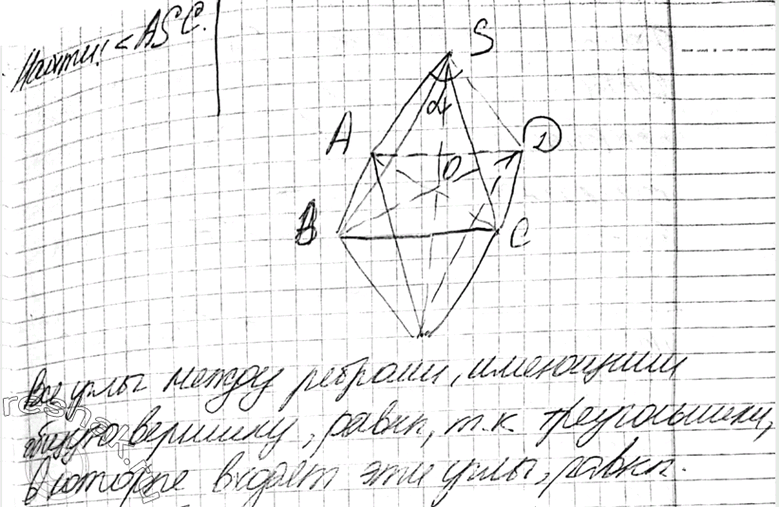 Найти: < ASC.
S
α
A
D
O
B
C
Все углы между ребрами, имеющими
общую вершину, равны, т.к треугольники,
в которые входят эти углы, равны.